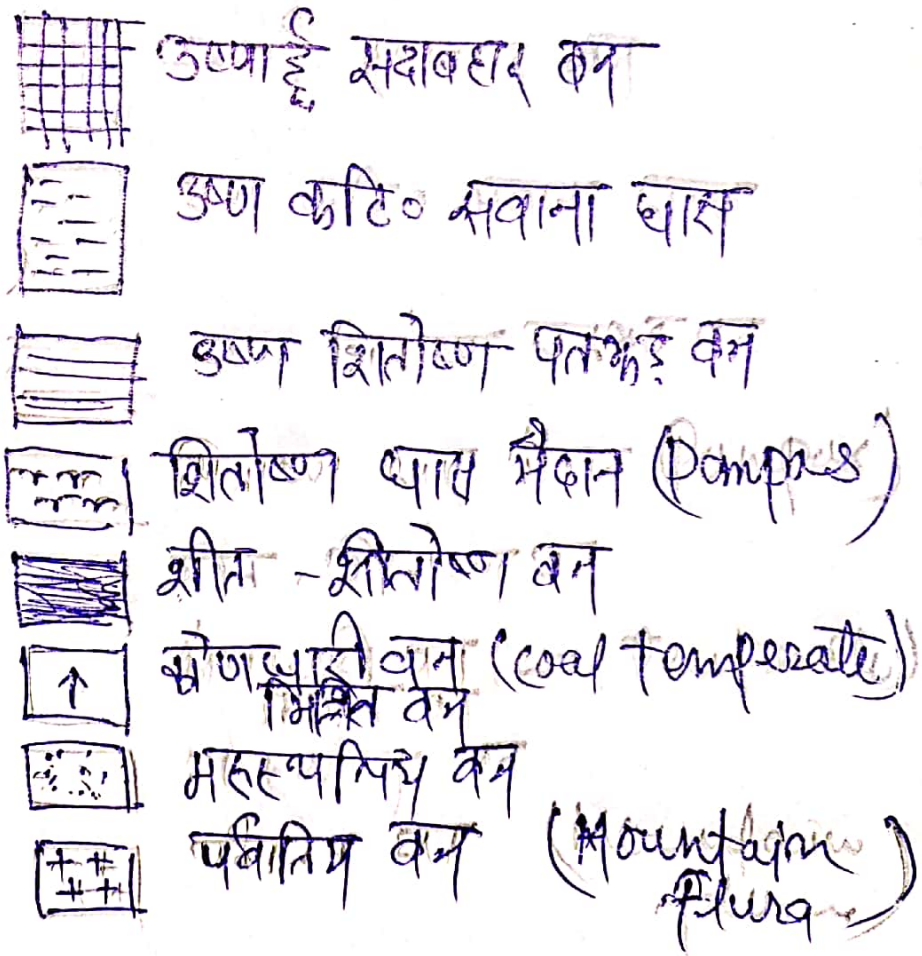 उष्णार्द्र सदाबहार वन
उष्ण कटि० सवाना घास
उष्ण शितोष्ण पतझड़ वन
शितोष्ण घास मैदान (Pampas)
शीत - शीतोष्ण वन
कोणधारी वन (cool temperate)
मिश्रित वन
मरुस्थलिय वन
पर्वातिय वन (Mountain
flura)